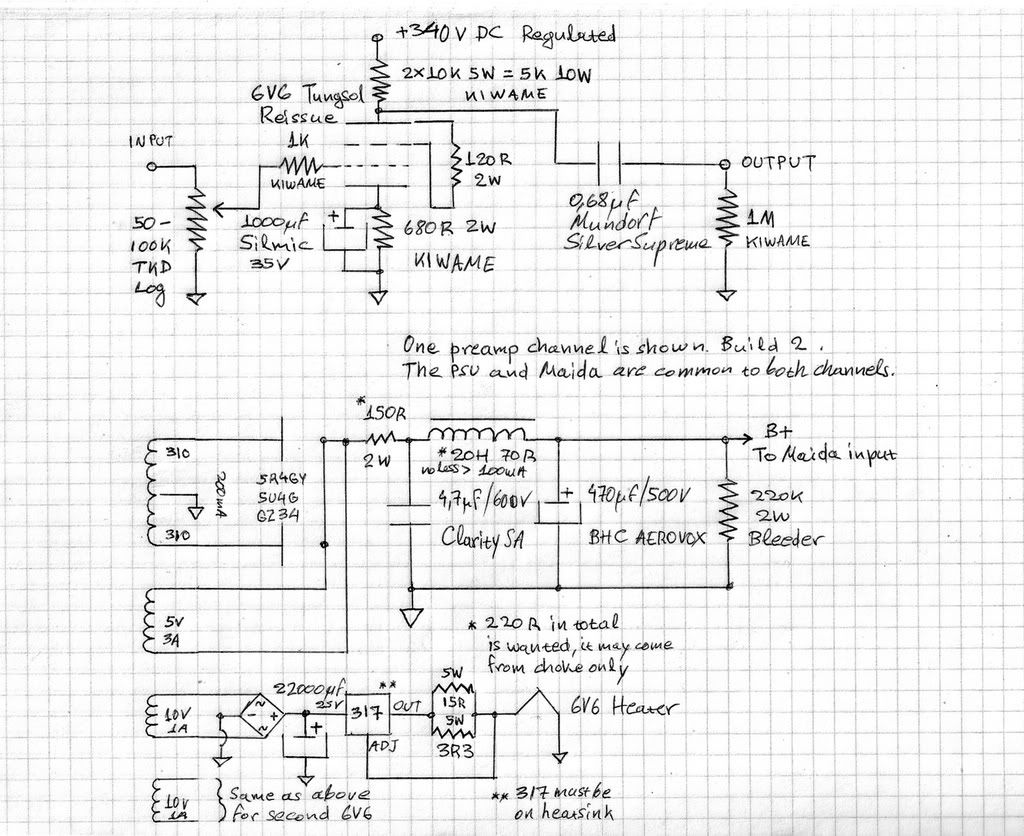 +340V DC Regulated
2x10K 5W = 5K 10W
KIWAME
6V6 Tungsol
Reissue
INPUT
1K
KIWAME
120R
2W
OUTPUT
50-
100K
TKD
Log
1000µf
Silmic
35V
+
680R 2W
KIWAME
0,68µf
Mundorf
Silver Supreme
1M
KIWAME
One preamp channel is shown. Build 2.
The PSU and Maida are common to both channels.
*150R
2W
* 20H 70R
no less > 100mA
B+
To Maida input
310
310
200mA
5R4GY
5U4G
GZ34
4,7µf/600V
Clarity SA
+
470µf/500V
BHC AEROVOX
220K
2W
Bleeder
5V
3A
* 220R in total
is wanted, it may come
from choke only
10V
1A
~
- +
~
22000µf
25V
+
**
317
OUT
ADJ
5W
15R
5W
3R3
6V6 Heater
10V
1A
Same as above
for second 6V6
** 317 must be
on heatsink